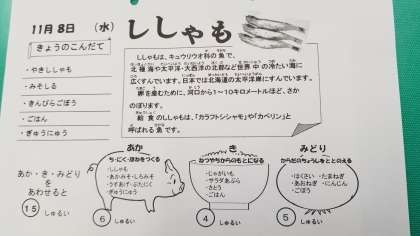 11月8日 (水)
ししゃも
きょうのこんだて
・やきししゃも
・みそしる
・きんぴらごぼう
・ごはん
・ぎゅうにゅう
ししゃもは、キュウリウオ科の魚で、
北極海や太平洋・大西洋の北部など世界中の冷たい海に
広くすんでいます。日本では北海道の太平洋岸にすんでいます。
卵を産むために、河口から1～10キロメートルほど、さか
のぼります。
給食のししゃもは、「カラフトシシャモ」や「カペリン」と
呼ばれる魚です。
あか・き・みどり
を
あわせると
15 しゅるい
あか
ち・にく・ほねをつくる
・ししゃも
・あかみそ・しろみそ
・うすあげ・ぶたにく
・ぎゅうにゅう
6 しゅるい
き
ねつやちからのもとになる
・じゃがいも
・サラダあぶら
・さとう
・ごはん
4 しゅるい
みどり
からだのちょうしをととのえる
・はくさい・たまねぎ
・あおねぎ・にんじん
・ごぼう
5 しゅるい